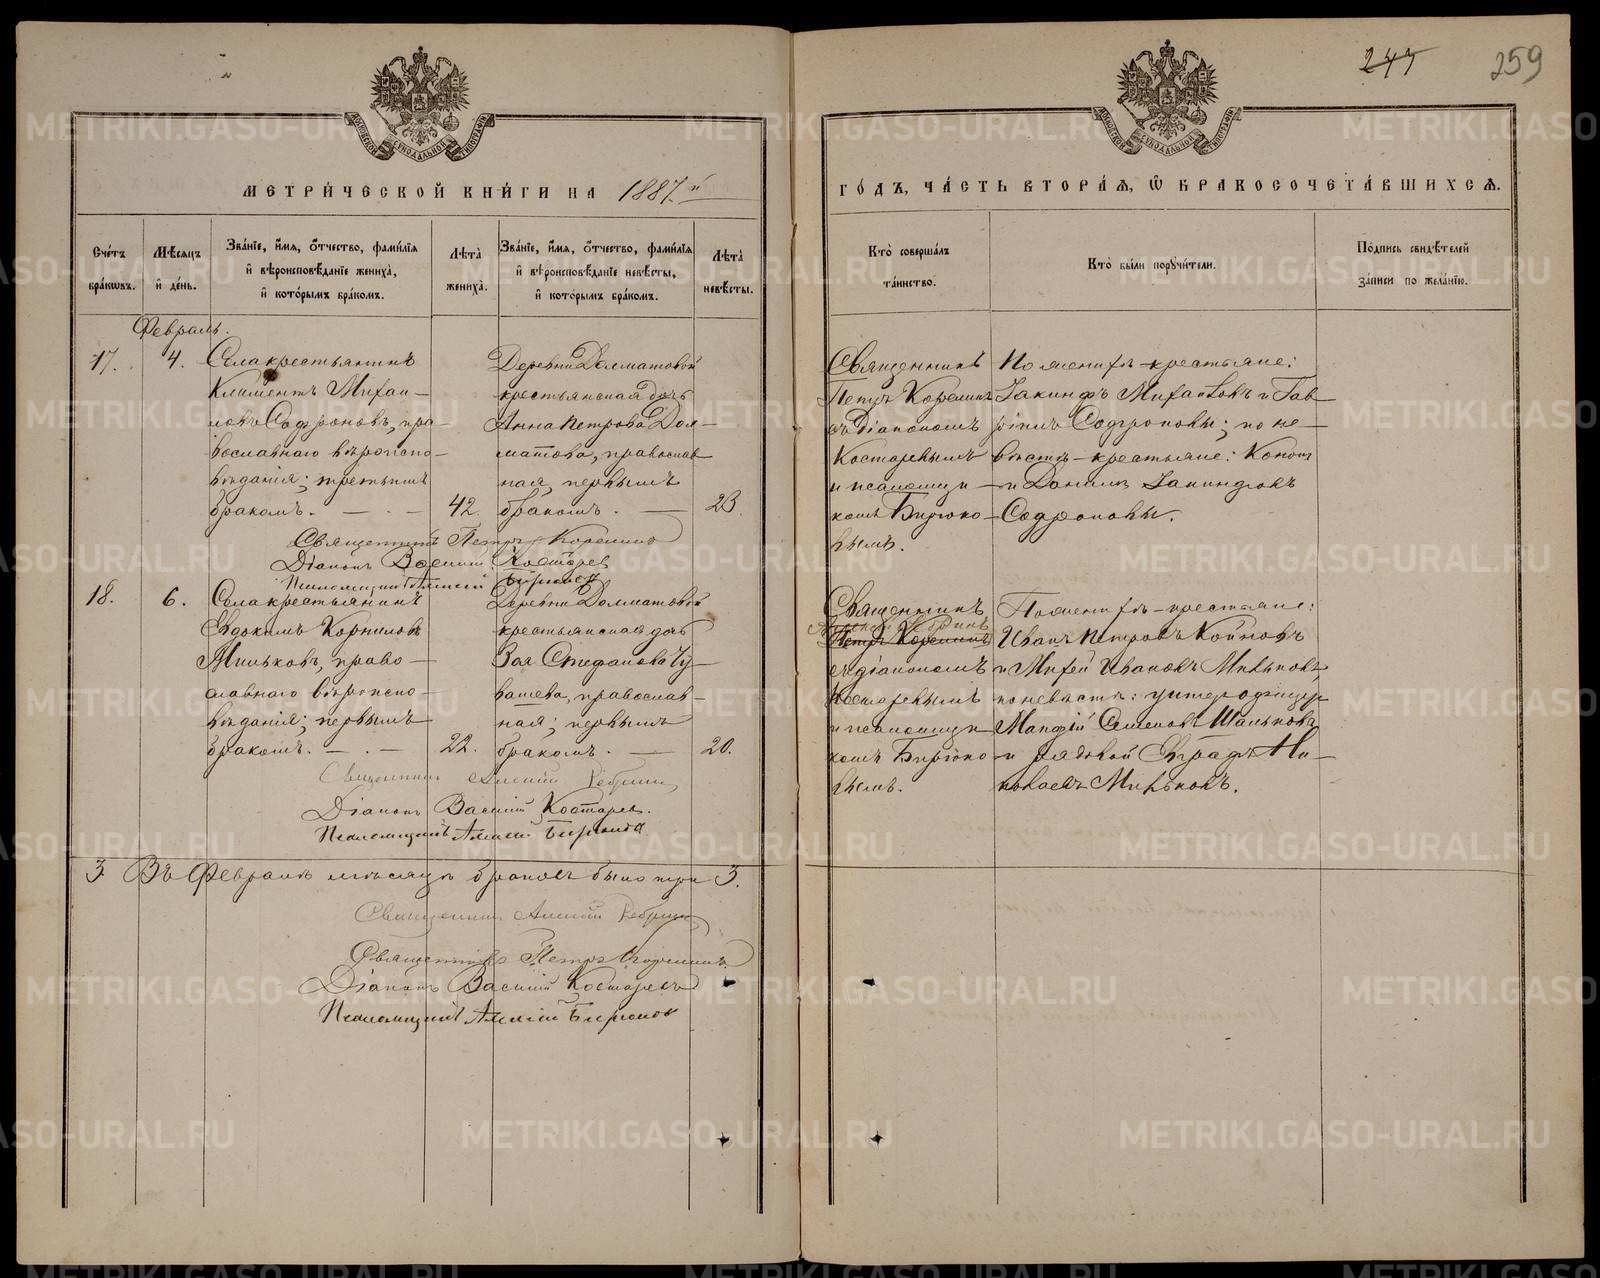 247 259
МЕТРИ́ЧЕСКОЙ КНИ́ГИ НА 1887й
ГО́ДЪ, ЧА́СТЬ ВТОРА́Я, Ѿ БРАКОСОЧЕТА́ВШИХСЯ.
Сче́тъ бра́кѡвъ.
Мѣ́сяцъ и де́нь.
Зва́ніе, и́мя, ѻ́тчество, фами́лія и вѣроисповѣ́даніе жениха̀, и кото́рымъ бра́комъ.
Лѣта̀ жениха̀.
Зва́ніе, и́мя, ѻ́тчество, фами́лія и вѣроисповѣ́даніе невѣ́сты, и кото́рымъ бра́комъ.
Лѣта̀ невѣ́сты.
Кто̀ соверша́лъ та́инство.
Кто̀ бы́ли порꙋчи́тели.
По́дпись свидѣ́телей за́писи по жела́нію.
Февраль.
17.
4.
Села крестьянинъ
Климентъ Михаи-
ловъ Софроновъ, пра-
вославнаго вѣроиспо-
вѣданія; третьимъ
бракомъ.
42.
Деревни Долматовой
крестьянская дочь
Анна Петрова Дол-
матова, православ
ная, первымъ
бракомъ.
23.
Священникъ
Петръ Корелинъ
съ діакономъ
Костаревымъ
и псаломщи-
комъ Бирюко-
вымъ.
По женихѣ-крестьяне:
Іакинфъ Михаиловъ и Гав-
ріилъ Софроновы; по не-
вѣстѣ-крестьяне: Кононъ
и Даніилъ Іакинфовы
Софроновы.
Священникъ Петръ Корелинъ
Діаконъ Василій Костарев
Псаломщикъ Алексій Бирюков
18.
6.
Села крестьянинъ
Евдокимъ Корниловъ
Мильковъ, право-
славнаго вѣроиспо-
вѣданія; первымъ
бракомъ.
22.
Деревни Долматовой
крестьянская дочь
Зоя Стефанова Чу-
вашева, православ-
ная; первымъ
бракомъ.
20.
Священникъ
Петръ Корелинъ
съ діакономъ
Костаревымъ
и псаломщи-
комъ Бирюко-
вымъ.
По женихѣ-крестьяне:
Иванъ Петровъ
Ивановъ Мильковъ,
по невѣстѣ: унтеръ офицеръ
Семеновъ
и рядовой Евграфъ Ни-
колаевъ Мильковъ.
Священникъ Алексій
Діаконъ Василій Костарев.
Псаломщикъ Алексій Бирюков
3 Въ Февралѣ мѣсяцѣ браковъ было три 3.
Священникъ Алексій
Священникъ Петръ Корелинъ
Діаконъ Василій Костаревъ
Псаломщикъ Алексій Бирюков
METRIKI.GASO-URAL.RU